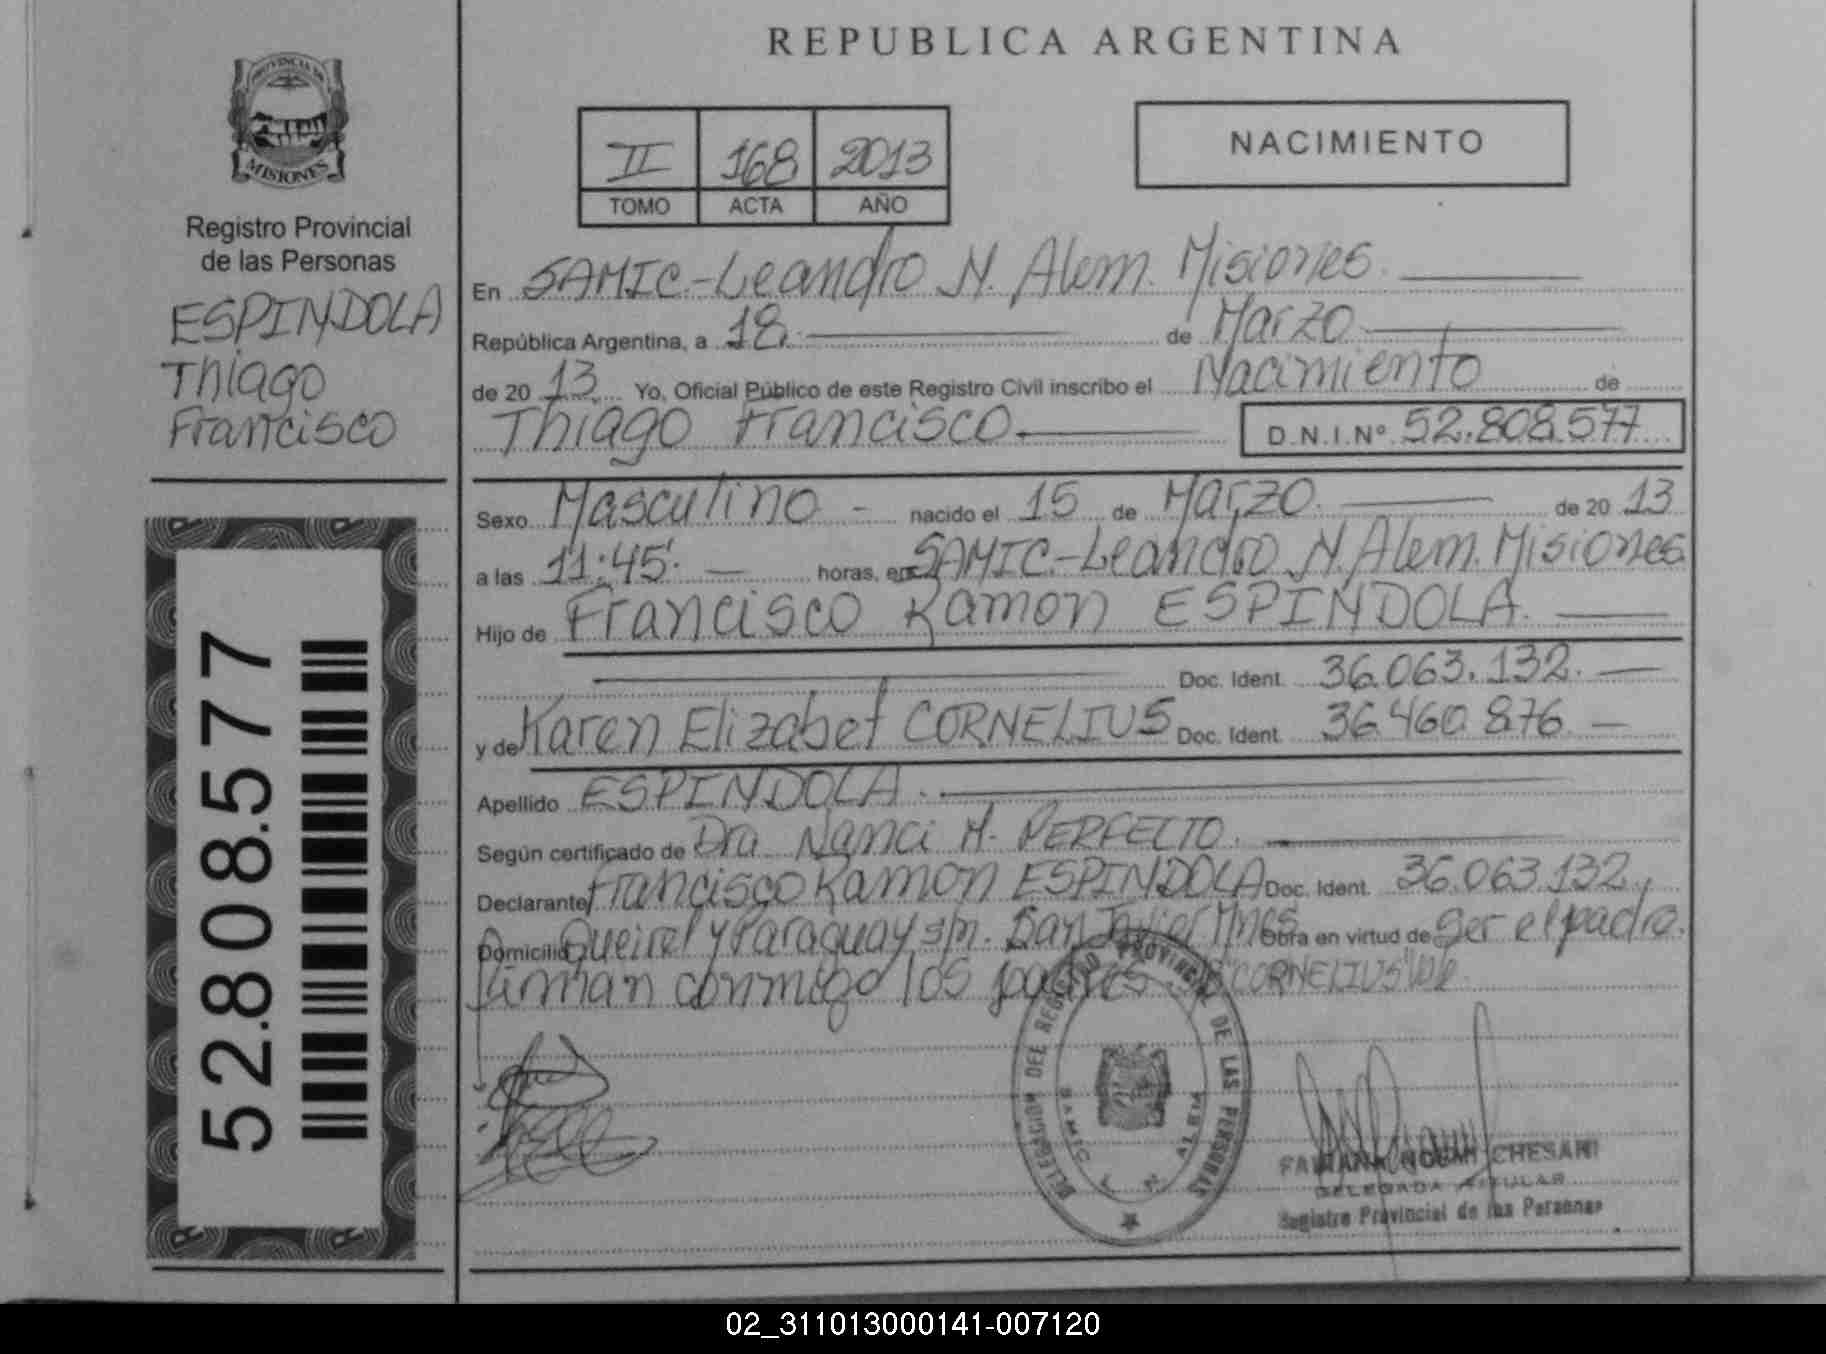 REPUBLICA ARGENTINA
PROVINCIA DE
MISIONES
Registro Provincial
de las Personas
ESPINDOLA
Thiago
Francisco
52.808.577
II 168 2013
TOMO ACTA AÑO
NACIMIENTO
En SAMIC.-Leandro N. Alem. Misiones.
República Argentina, a 18. de Marzo.
de 20 13. Yo, Oficial Público de este Registro Civil inscribo el Nacimiento de
Thiago Francisco. D.N.I.Nº 52.808.577
Sexo Masculino - nacido el 15 de Marzo. de 20 13
a las 11:45. horas, en SAMIC.-Leandro N. Alem. Misiones
Hijo de Francisco Ramon ESPINDOLA.
Doc. Ident. 36.063.132.
y de Karen Elizabet CORNELIUS Doc. Ident. 36.460.876.
Apellido ESPINDOLA.
Según certificado de Dra Nanci M. PERFECTO.
Declarante Francisco Ramon ESPINDOLA Doc. Ident. 36.063.132.
Domicilio Queirel y Paraguay s/n. San Javier Mnes Obra en virtud de ser el padre.
Firman conmigo los padres. "CORNELIUS" Vale
DELEGACION DEL REGISTRO PROVINCIAL DE LAS PERSONAS
SAMIC L N ALEM
FABIANA NOEMI CHESANI
DELEGADA TITULAR
Registro Provincial de las Personas
02_311013000141-007120